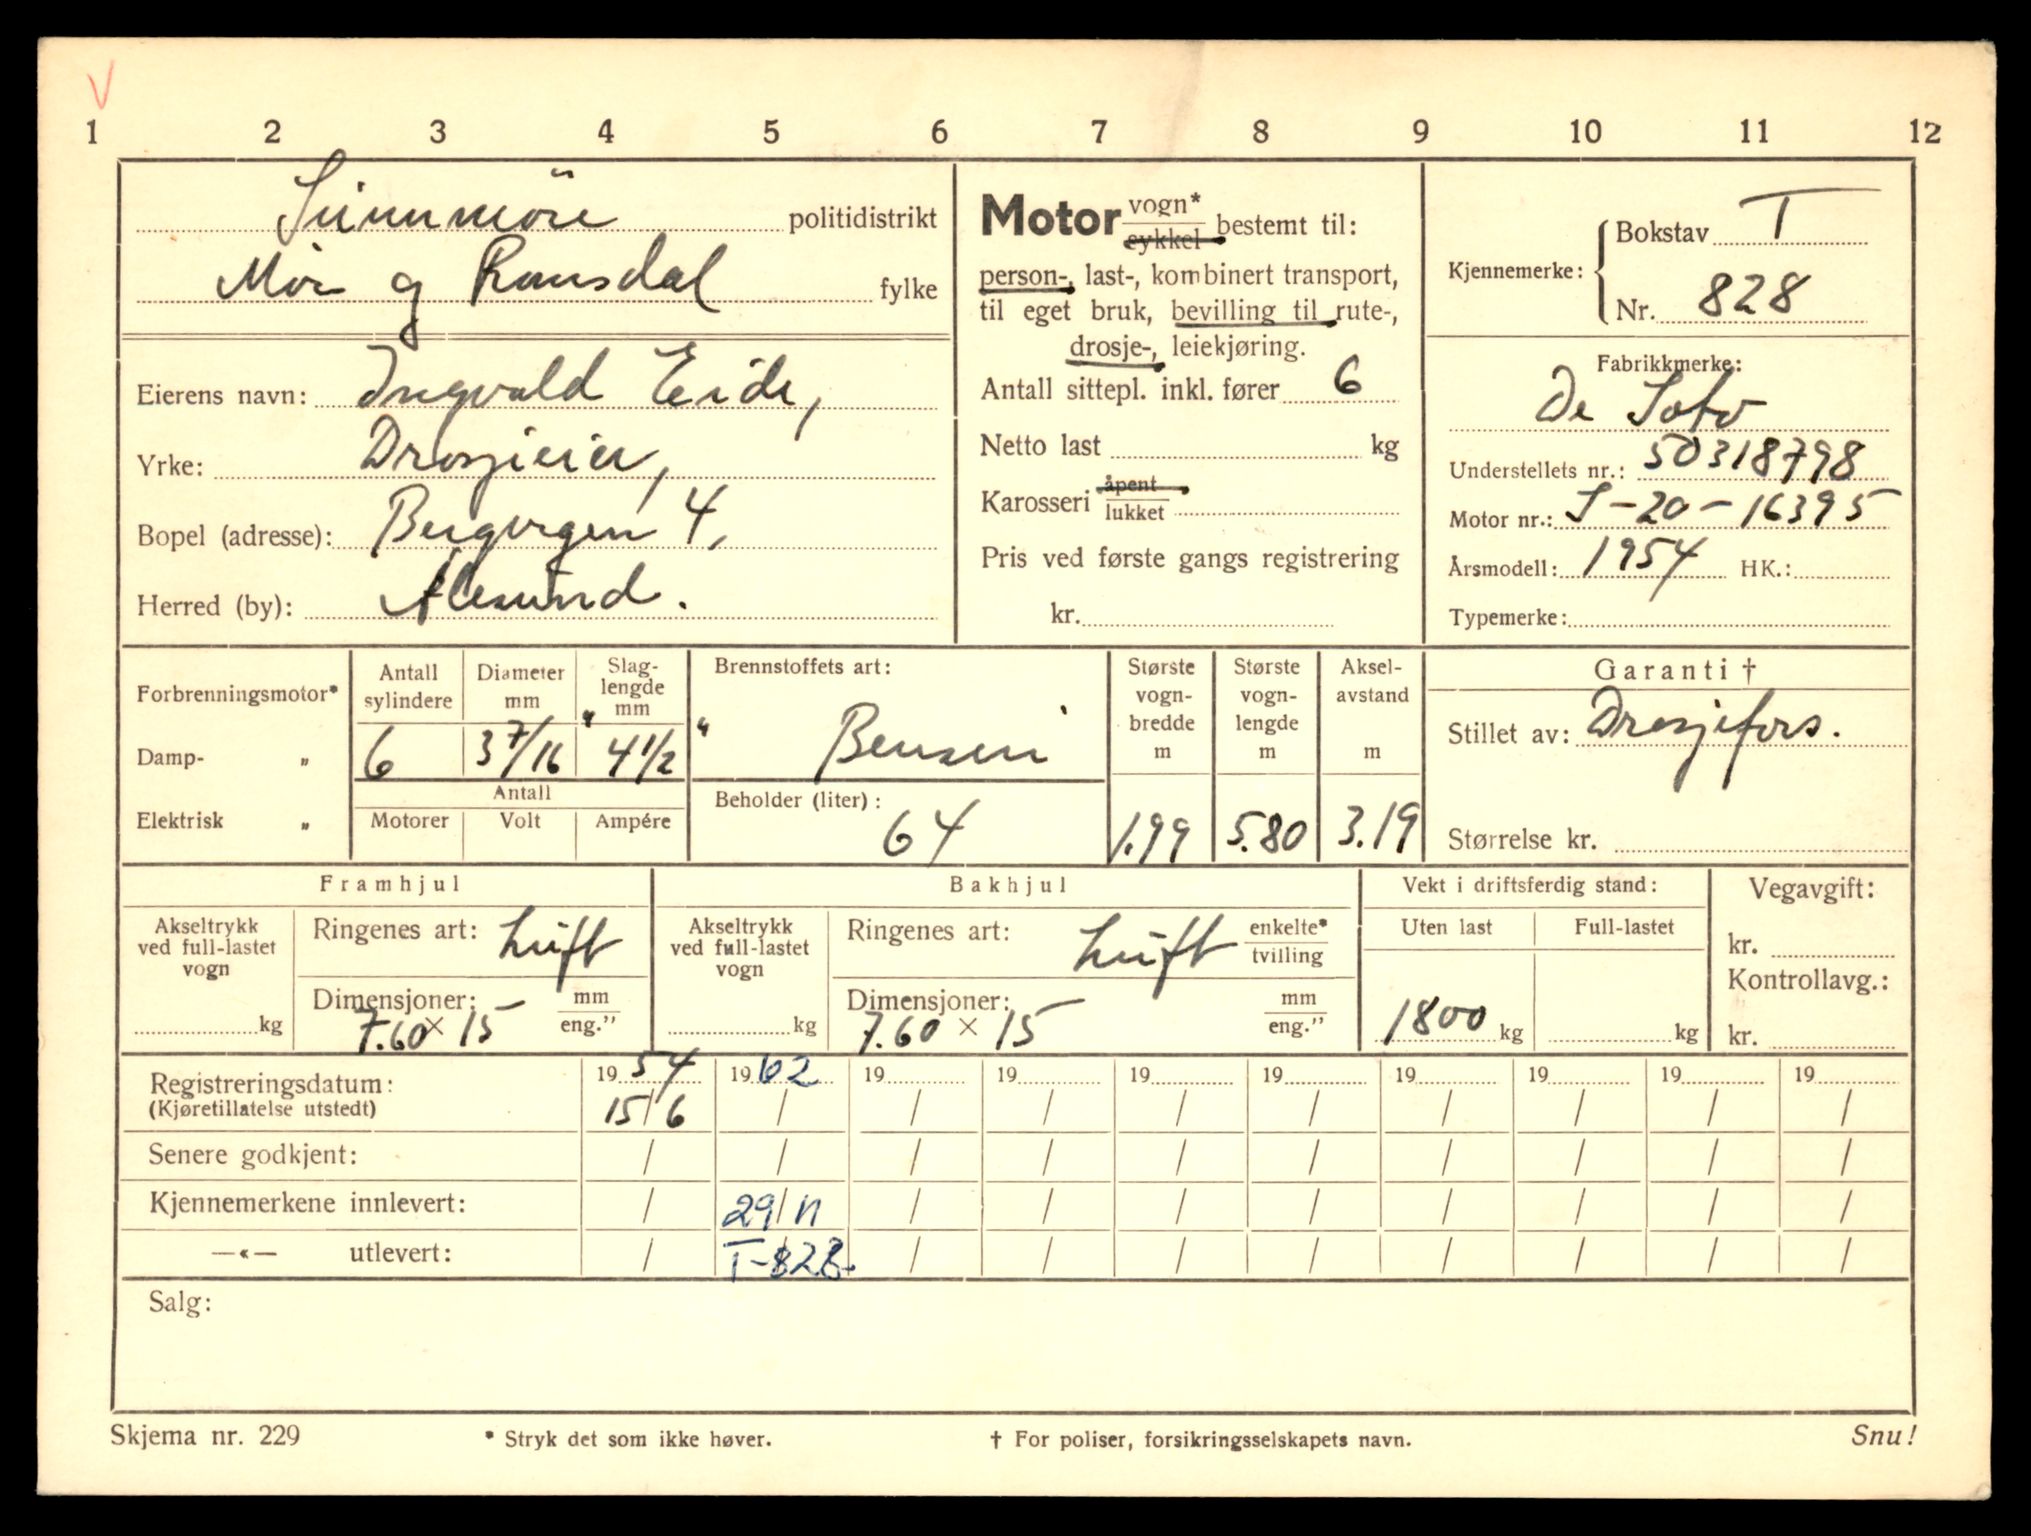 V
1 2 3 4 5 6 7 8 9 10 11 12
Sunnmöre politidistrikt
Möre og Romsdal fylke
Eierens navn: Ingvald Eide,
Yrke: Drosjeeier,
Bopel (adresse): Bergvegen 4,
Herred (by): Ålesund.
Motor vogn* / cykkel bestemt til:
person-, last-, kombinert transport,
til eget bruk, bevilling til rute-,
drosje-, leiekjøring.
Antall sittepl. inkl. fører 6
Netto last kg
Karosseri åpent / lukket
Pris ved første gangs registrering
kr.
Kjennemerke: Bokstav T
Nr. 828
Fabrikkmerke:
De Soto
Understellets nr.: 50318798
Motor nr.: S-20-16395
Årsmodell: 1954 HK.:
Typemerke:
Forbrenningsmotor*
Damp- „
Elektrisk „
Antall sylindere
6
Diameter mm
3 7/16
Slag-lengde mm
" 4 1/2 "
Antall
Motorer Volt Ampére
Brennstoffets art:
Bensin
Beholder (liter):
64
Største vogn-bredde m
1.99
Største vogn-lengde m
5.80
Aksel-avstand m
3.19
Garanti †
Stillet av: Drosjefors.
Størrelse kr.
Framhjul
Akseltrykk ved full-lastet vogn
kg
Ringenes art: Luft
Dimensjoner: mm / eng."
7.60 × 15
Bakhjul
Akseltrykk ved full-lastet vogn
kg
Ringenes art: Luft enkelte* / tvilling
Dimensjoner: mm / eng."
7.60 × 15
Vekt i driftsferdig stand:
Uten last Full-lastet
1800 kg kg
Vegavgift:
kr.
Kontrollavg.:
kr.
Registreringsdatum: 19 54 19 62 19 19 19 19 19 19 19 19
(Kjøretillatelse utstedt) 15/6 / / / / / / / / /
Senere godkjent: / / / / / / / / / /
Kjennemerkene innlevert: / 29/11 / / / / / / / /
—«— utlevert: / T-828. / / / / / / / /
Salg:
Skjema nr. 229 * Stryk det som ikke høver. † For poliser, forsikringsselskapets navn. Snu!